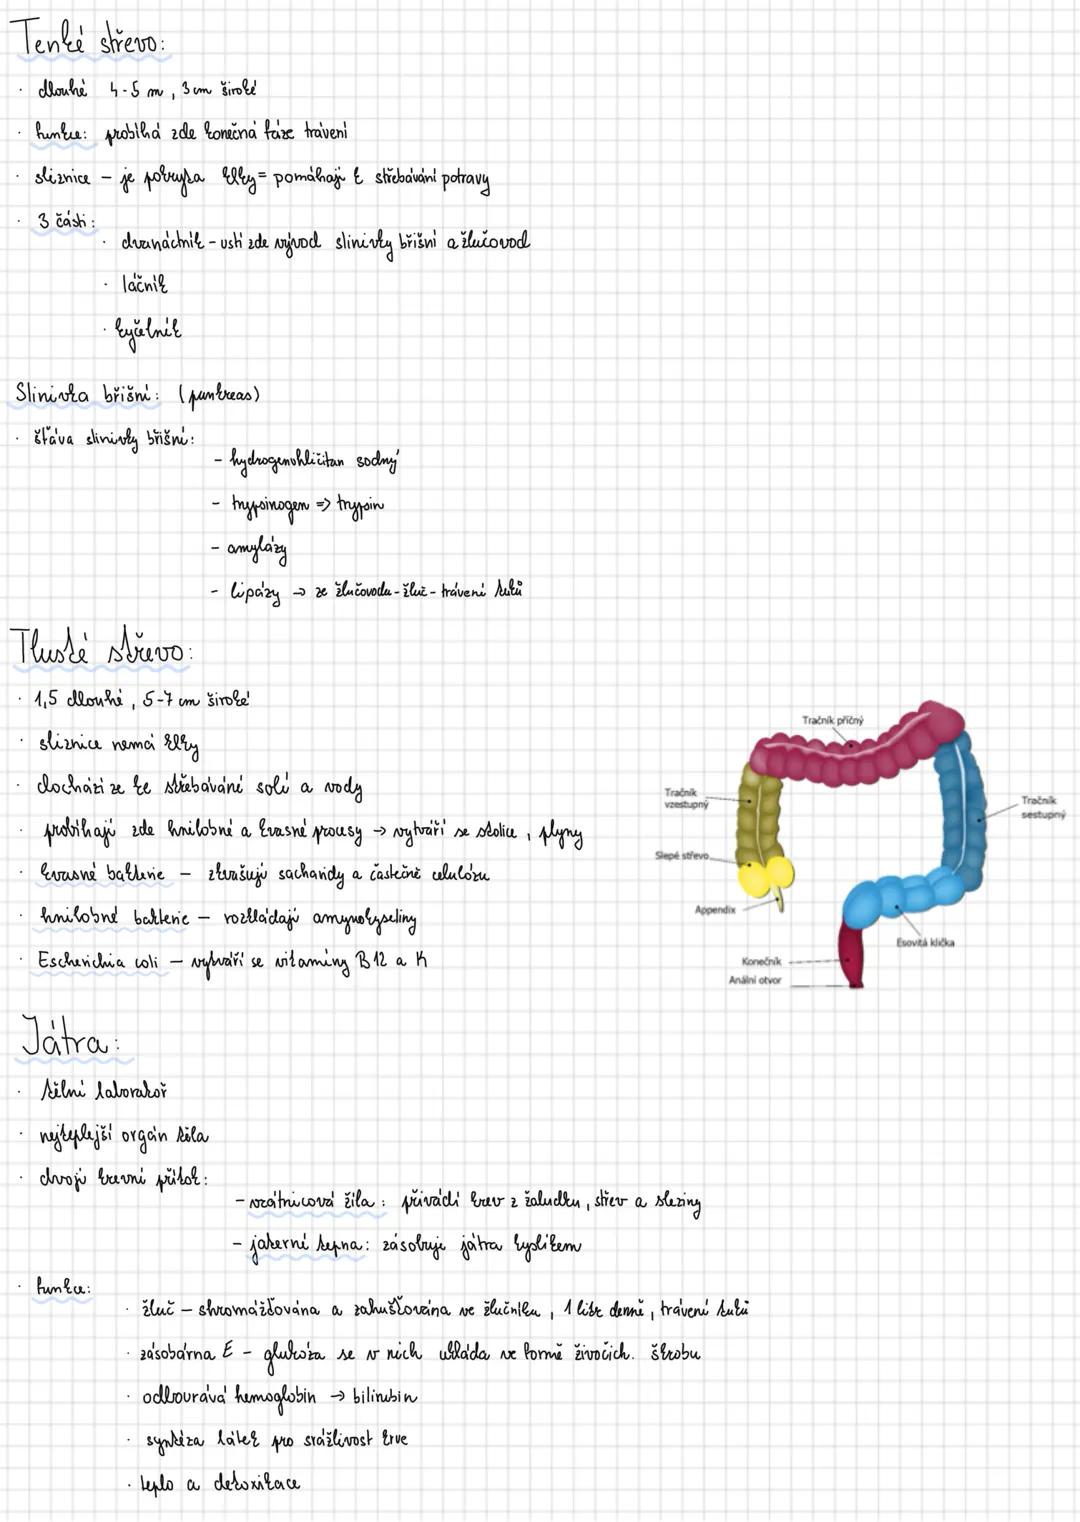 Tenké střevo:
· dlouhé 4-5 m, 3 cm široké
· funkce: probíhá zde konečná fáze trávení
· sliznice – je pokryta klky = pomáhají k střebávání potravy
· 3 části:
· dvanáctník – ústí zde vývod slinivky břišní a žlučovod
· lačník
· kyčelník
Slinivka břišní: (pankreas)
· šťáva slinivky břišní:
- hydrogenuhličitan sodný
- trypsinogen => trypsin
- amylázy
- lipázy → ze žlučovodu - žluč - trávení tuků
Tlusté střevo:
· 1,5 dlouhé, 5-7 cm široké
· sliznice nemá klky
· dochází ze ke střebávání solí a vody
· probíhají zde hnilobné a kvasné procesy → vytváří se stolice, plyny
· kvasné bakterie – zkvašují sacharidy a částečně celulózu
· hnilobné bakterie – rozkládají amynokyseliny
· Escherichia coli – vytváří se vitamíny B12 a K
Tračník příčný
Tračník
vzestupný
Tračník
sestupný
Slepé střevo
Appendix
Esovitá klička
Konečník
Anální otvor
Játra:
· tělní laboratoř
· nejteplejší orgán těla
· dvojí krevní přítok:
- vrátnicová žíla: přivádí krev z žaludku, střev a sleziny
- jaterní tepna: zásobuje játra kyslíkem
· funkce:
· žluč – shromážďována a zahušťována ve žlučníku, 1 litr denně, trávení tuků
· zásobárna E – glukóza se v nich ukládá ve formě živočich. škrobu
· odbourává hemoglobin → bilirubin
· syntéza látek pro srážlivost krve
· teplo a detoxikace